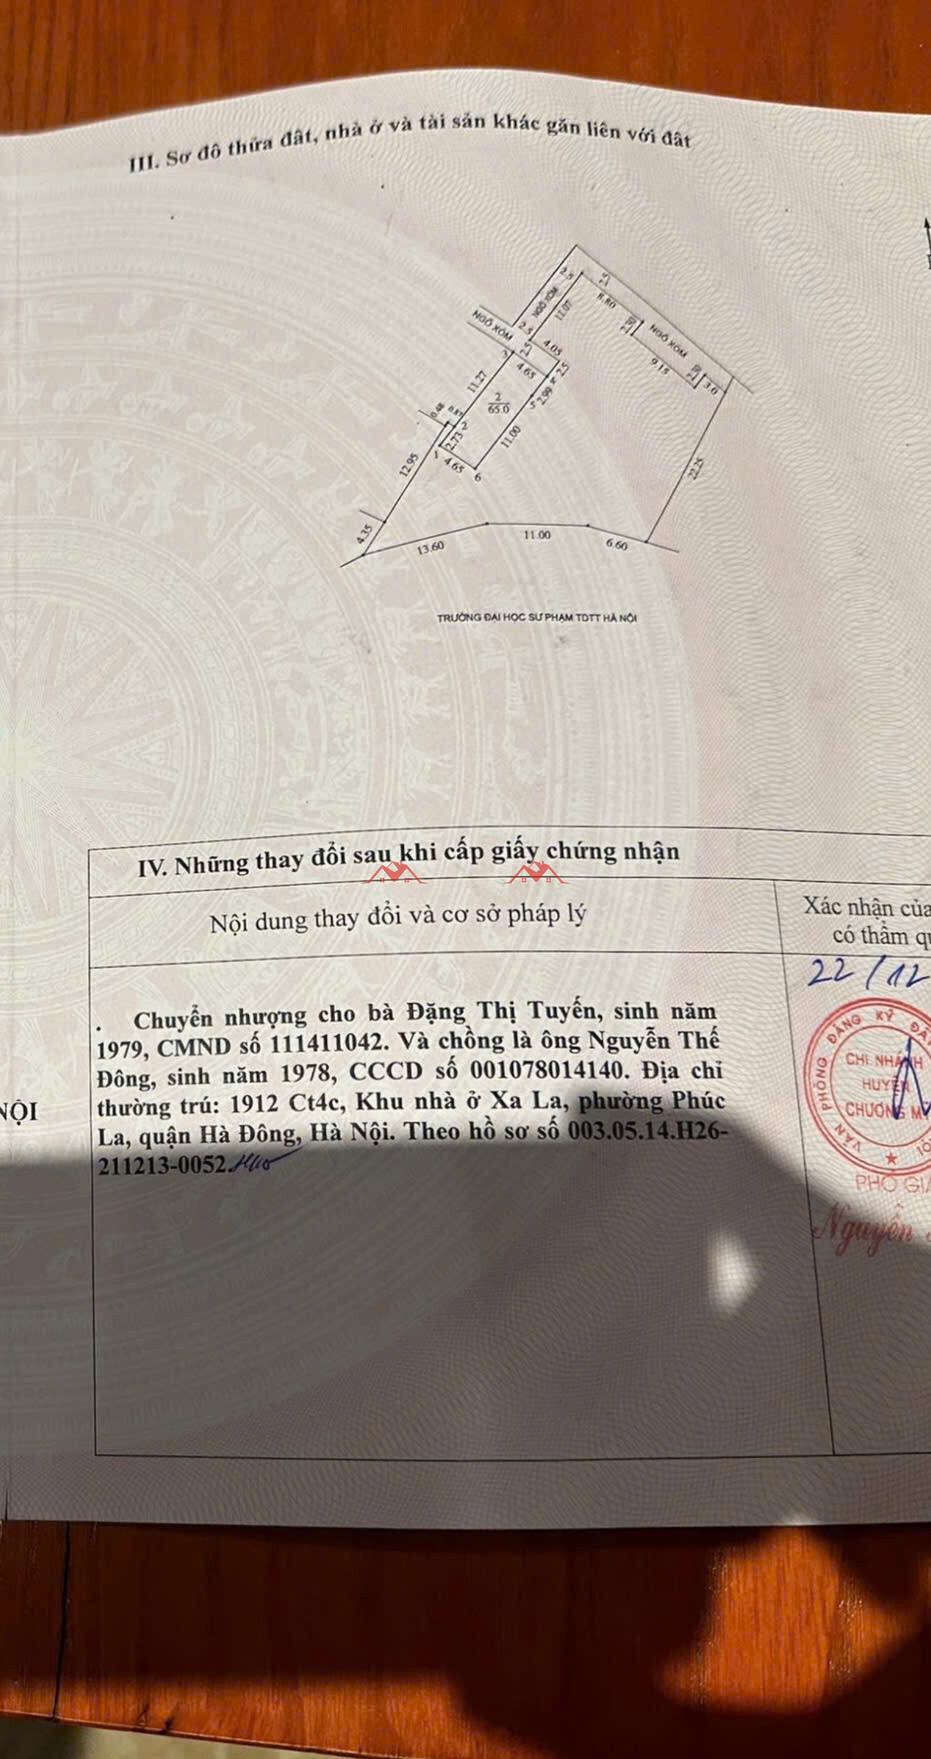 III. Sơ đồ thửa đất, nhà ở và tài sản khác gắn liền với đất
2.5
2.5
NGÕ XÓM
11.07
8.80
NGÕ XÓM
NGÕ XÓM
2.5
2.5
4.05
3
4.65
2.5
9.15
3.0
11.27
2
65.0
5
2.99
0.48
0.87
2
11.00
1
2.73
4.65
6
12.95
22.25
4.35
13.60
11.00
6.60
TRƯỜNG ĐẠI HỌC SƯ PHẠM TDTT HÀ NỘI
IV. Những thay đổi sau khi cấp giấy chứng nhận
Nội dung thay đổi và cơ sở pháp lý
Xác nhận của
có thẩm q
22/12
. Chuyển nhượng cho bà Đặng Thị Tuyến, sinh năm
1979, CMND số 111411042. Và chồng là ông Nguyễn Thế
Đông, sinh năm 1978, CCCD số 001078014140. Địa chỉ
thường trú: 1912 Ct4c, Khu nhà ở Xa La, phường Phúc
La, quận Hà Đông, Hà Nội. Theo hồ sơ số 003.05.14.H26-
211213-0052.
NỘI
VĂN PHÒNG ĐĂNG KÝ ĐẤ
CHI NHÁNH
HUYỆN
CHƯƠNG M
PHÓ GI
Nguyễn